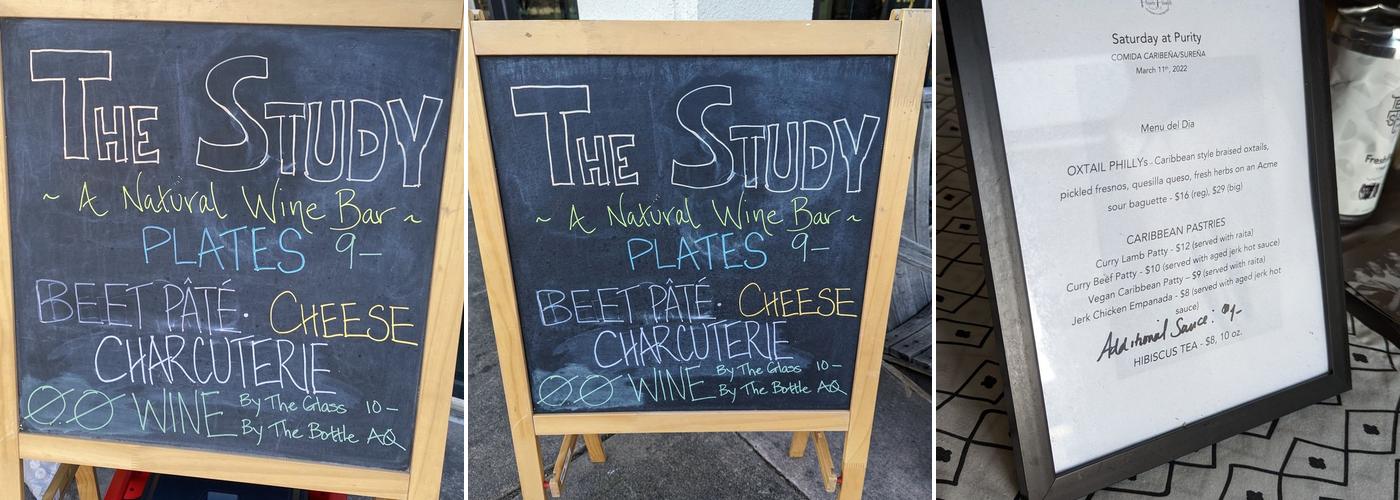 THE STUDY
~ A Natural Wine Bar ~
PLATES 9–
BEET PÂTÉ · CHEESE
CHARCUTERIE
ØØ WINE By The Glass 10–
By The Bottle AQ
THE STUDY
~ A Natural Wine Bar ~
PLATES 9–
BEET PÂTÉ · CHEESE
CHARCUTERIE
ØØ WINE By The Glass 10–
By The Bottle AQ
Saturday at Purity
COMIDA CARIBEÑA/SUREÑA
March 11th, 2022
Menu del Dia
OXTAIL PHILLYs - Caribbean style braised oxtails,
pickled fresnos, quesilla queso, fresh herbs on an Acme
sour baguette - $16 (reg), $29 (big)
CARIBBEAN PASTRIES
Curry Lamb Patty - $12 (served with raita)
Curry Beef Patty - $10 (served with aged jerk hot sauce)
Vegan Caribbean Patty – $9 (served wiith raita)
Jerk Chicken Empanada - $8 (served with aged jerk hot
sauce)
Additional Sauce:
HIBISCUS TEA - $8, 10 oz.
Fresh